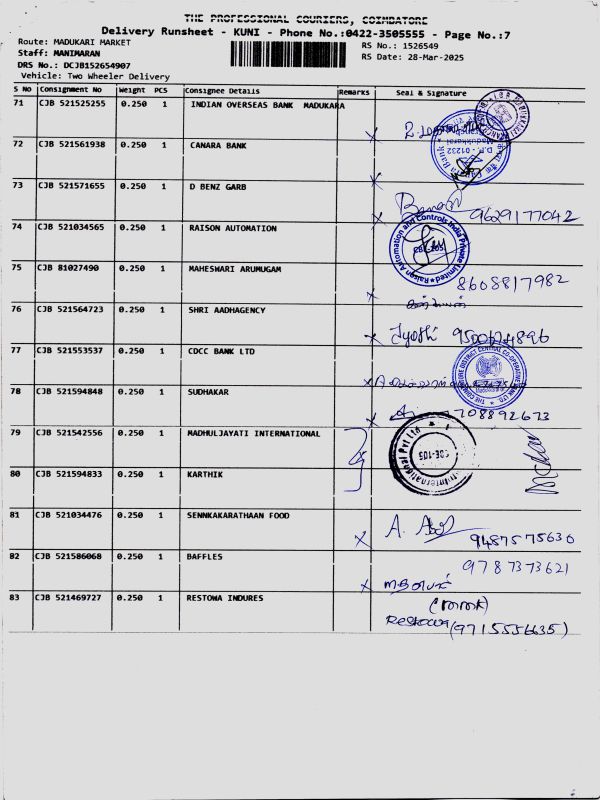 THE PROFESSIONAL COURIERS, COIMBATORE
Delivery Runsheet - KUNI - Phone No.:0422-3505555 - Page No.:7
Route: MADUKARI MARKET
RS No.: 1526549
Staff: MANIMARAN
RS Date: 28-Mar-2025
DRS No.: DCJB152654907
Vehicle: Two Wheeler Delivery
S No Consignment No Weight PCS Consignee Details Remarks Seal & Signature
71 CJB 521525255 0.250 1 INDIAN OVERSEAS BANK MADUKARA
72 CJB 521561938 0.250 1 CANARA BANK
D.P. - 01232
Madukkarai
73 CJB 521571655 0.250 1 D BENZ GARB
9629177042
74 CJB 521034565 0.250 1 RAISON AUTOMATION
Raison Automation and Controls India Private Limited
75 CJB 81027490 0.250 1 MAHESWARI ARUMUGAM
8608817982
76 CJB 521564723 0.250 1 SHRI AADHAGENCY
Jyothi
77 CJB 521553537 0.250 1 CDCC BANK LTD
THE COIMBATORE DISTRICT CENTRAL CO-OPERATIVE BANK LTD
78 CJB 521594848 0.250 1 SUDHAKAR
79 CJB 521542556 0.250 1 MADHULJAYATI INTERNATIONAL
International Pvt Ltd
CBE-105
80 CJB 521594833 0.250 1 KARTHIK
81 CJB 521034476 0.250 1 SENNKAKARATHAAN FOOD
9487575630
82 CJB 521586068 0.250 1 BAFFLES
9787373621
83 CJB 521469727 0.250 1 RESTOWA INDURES
Restowa (9715556635)